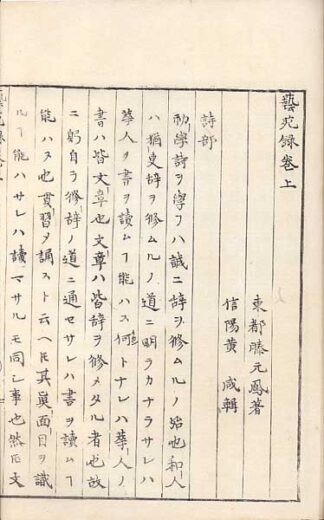 藝苑録巻上
東都滕元鳳著
信陽黄 咸輯
詩部
初學詩ヲ学フハ誠ニ辞ヲ修ムルノ始也和人
ハ猶更辞ヲ修ムルノ道ニ明ラカナラサレハ
華人ヲ書ヲ讀ムヿ能ハス何トナレハ華人ノ
書ハ皆文章也文章ハ皆辞ヲ修メタル者也故
ニ躬自ラ修辞ノ道ニ通セサレハ書ヲ讀ムヿ
能ハス也貫習メ誦スト云ヘ𪜈其眞面目ヲ識
ルヿ能ハサレハ讀マサルモ同シ事也然𪜈文